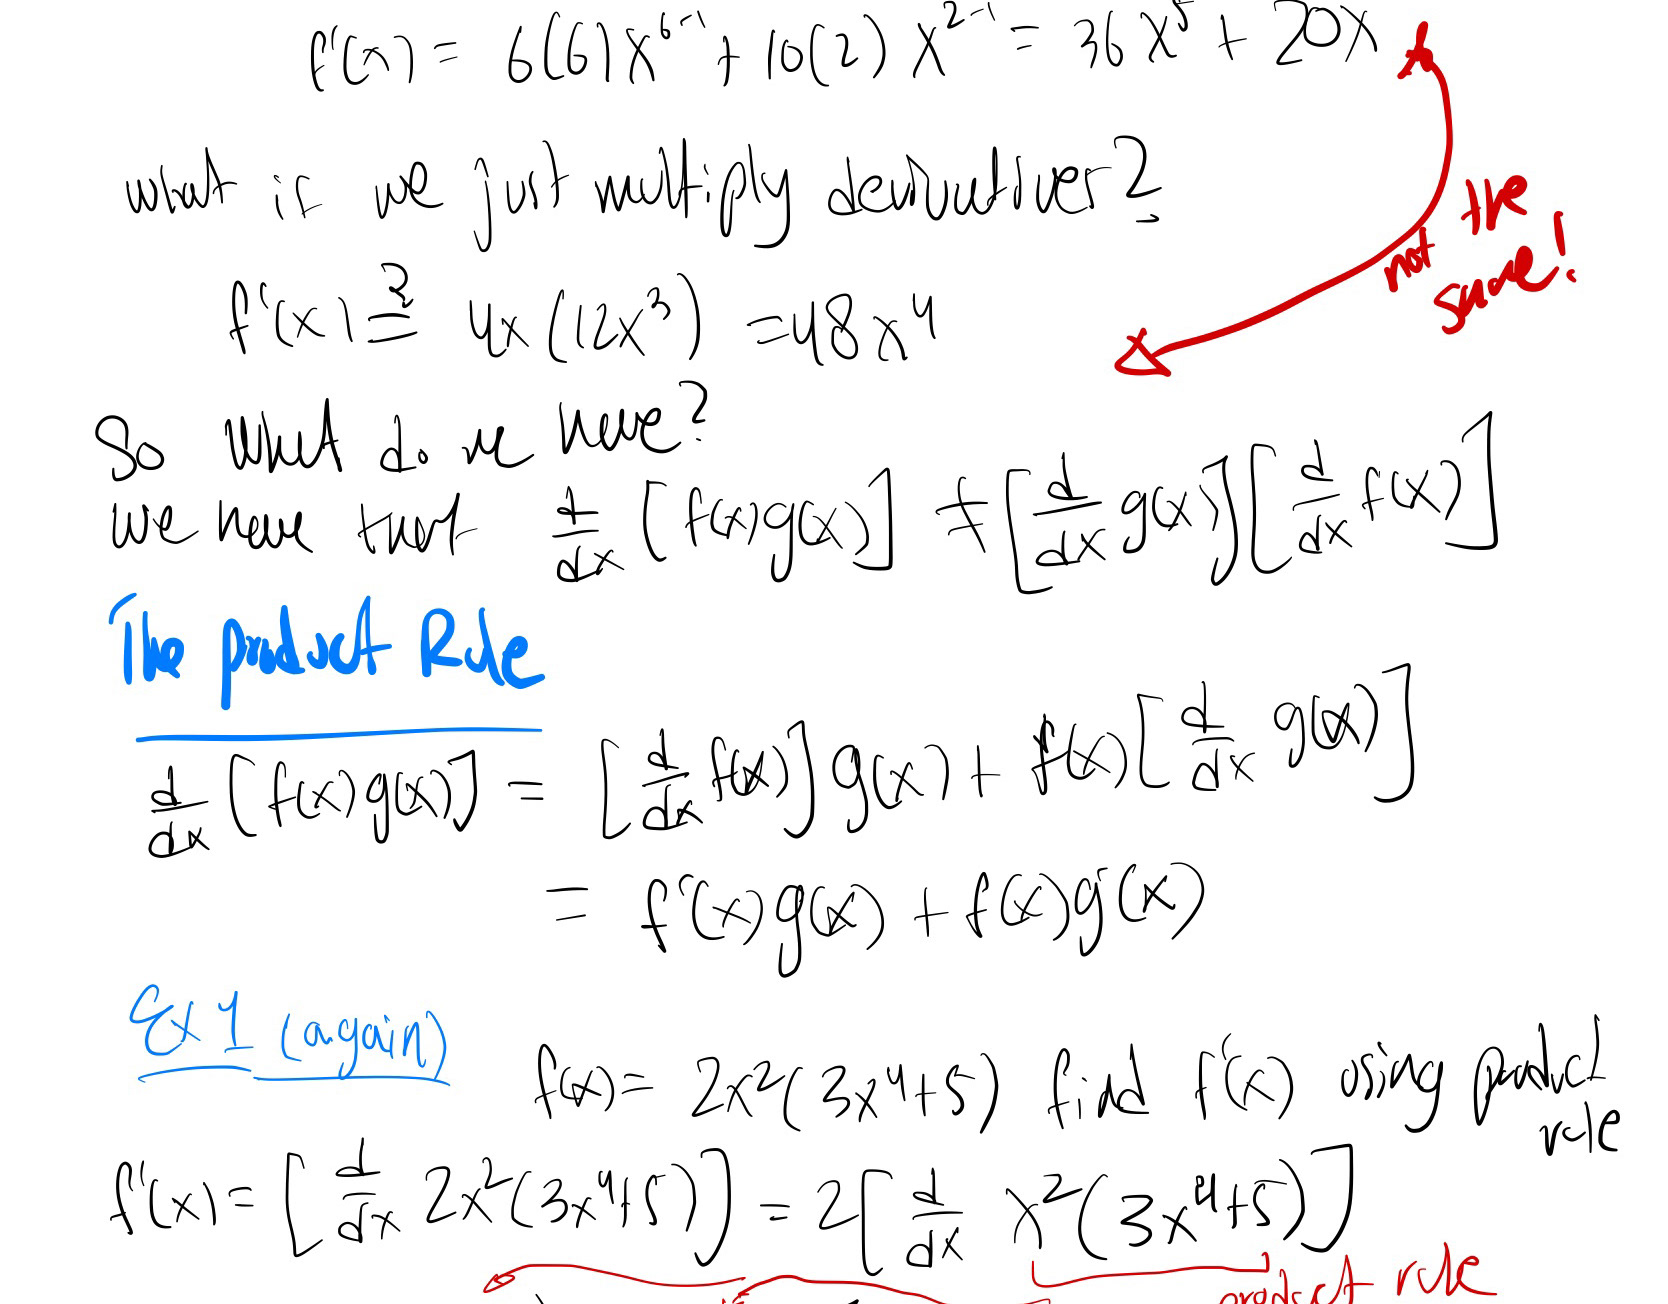 f'(x) = 6(6)x^{6-1} + 10(2) x^{2-1} = 36x^5 + 20x
what if we just multiply derivatives?
not the same!
f'(x) ≟ 4x(12x^3) = 48x^4
So what do we have?
we have that d/dx [f(x)g(x)] ≠ [d/dx g(x)][d/dx f(x)]
The product Rule
d/dx [f(x)g(x)] = [d/dx f(x)] g(x) + f(x)[d/dx g(x)]
= f'(x)g(x) + f(x)g'(x)
Ex 1 (again)
f(x) = 2x^2(3x^4+5) find f'(x) using product rule
f'(x) = [d/dx 2x^2(3x^4+5)] = 2[d/dx x^2(3x^4+5)]
product rule